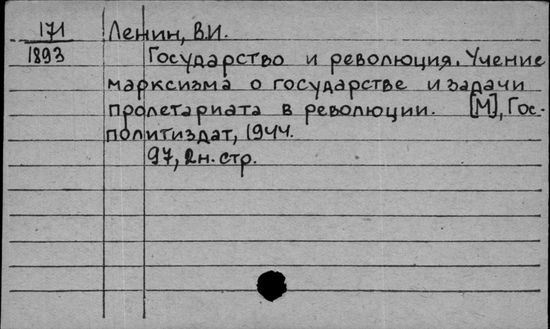 171 Ленин, В.И.
1893 Государство и революция. Учение
марксизма о государстве и задачи
пролетариата в революции. [М], Гос-
политиздат, 1944.
97, 2н. стр.